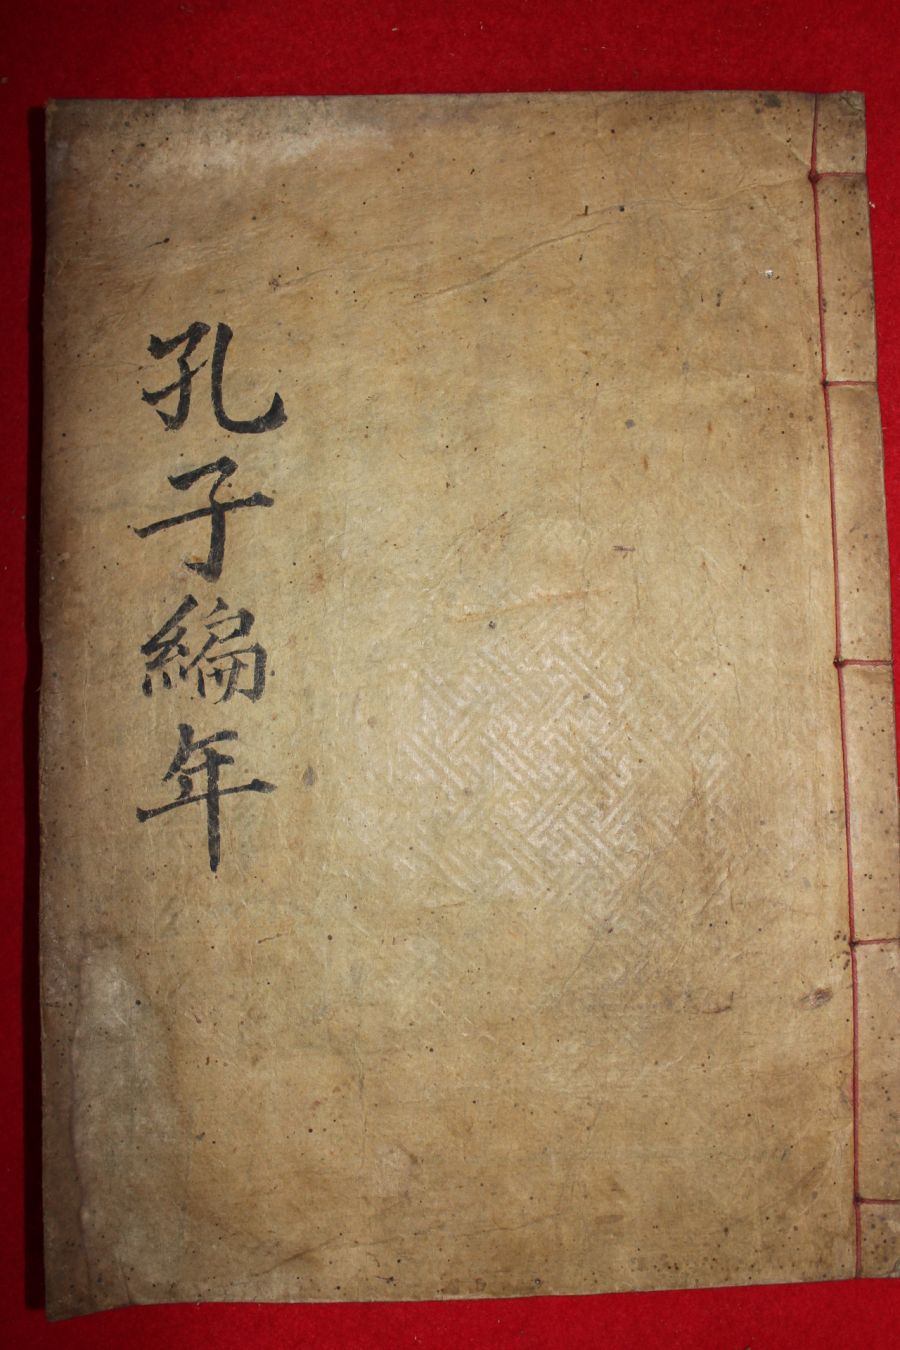 孔子編年